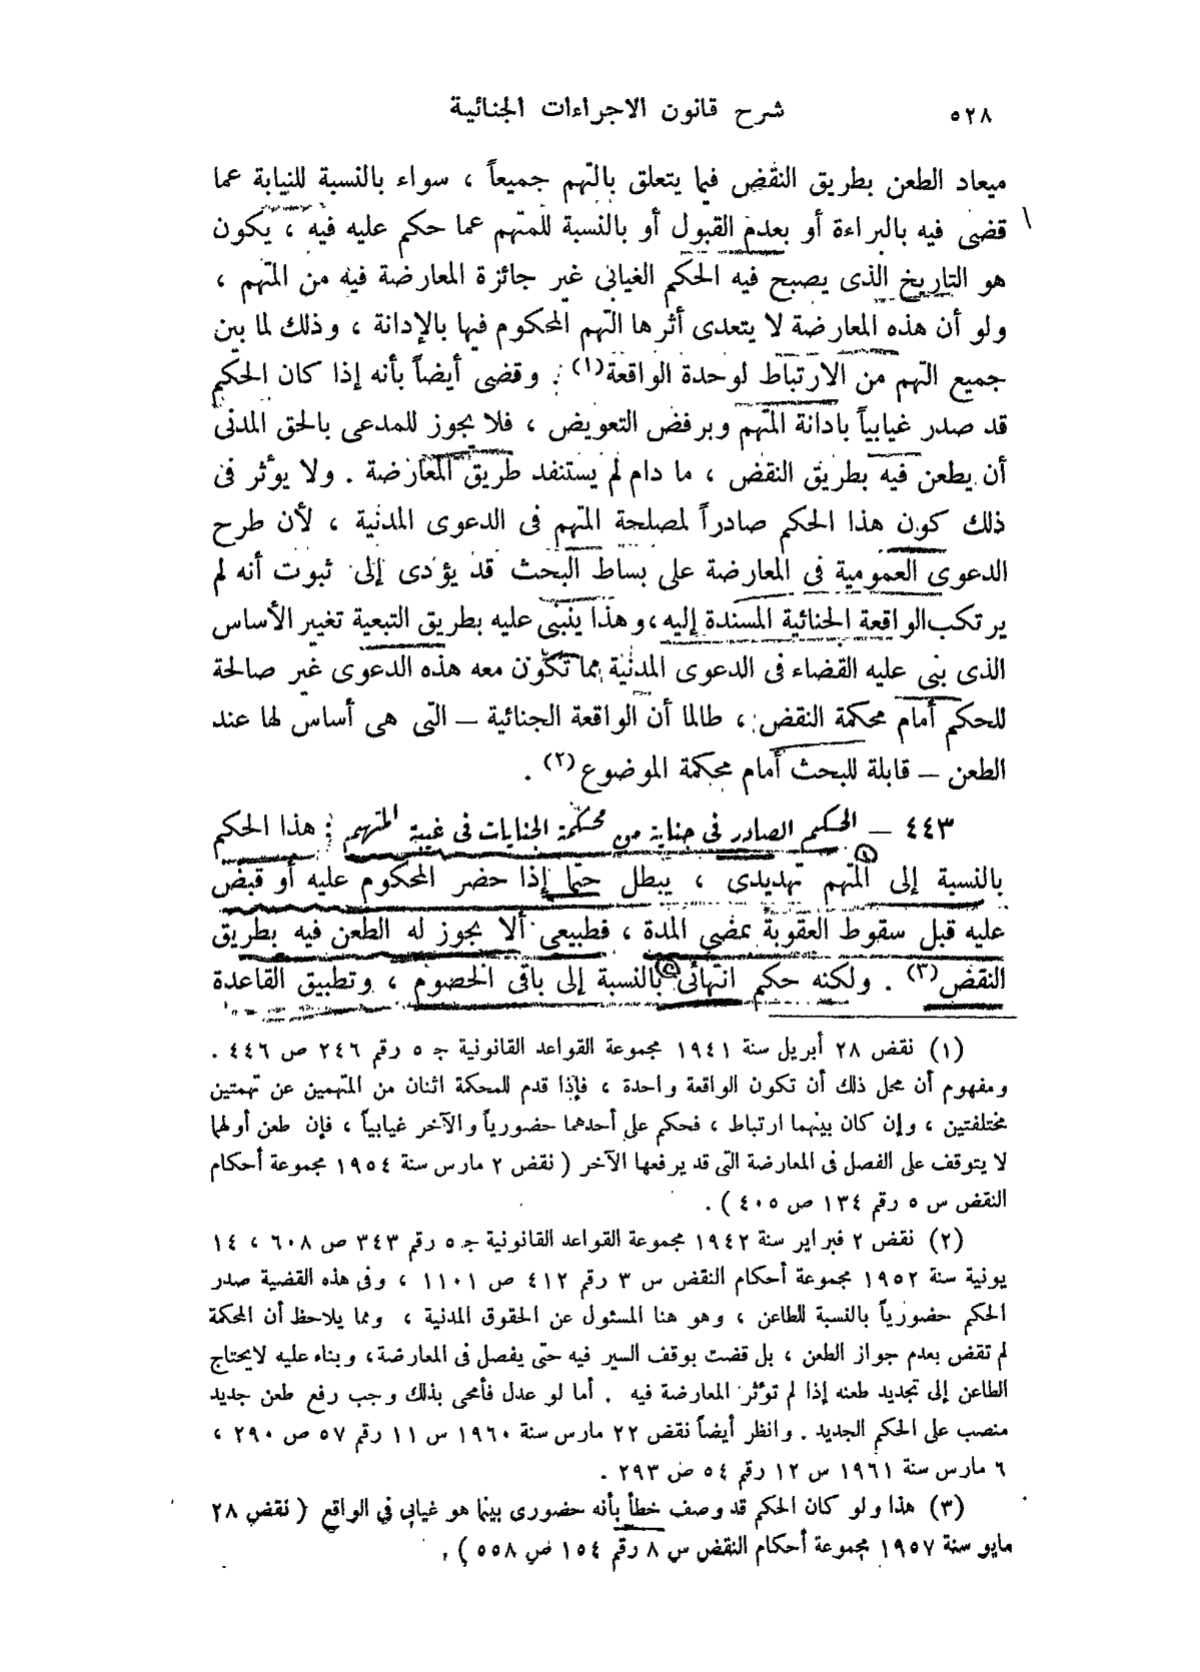 ٥٢٨
شرح قانون الاجراءات الجنائية
ميعاد الطعن بطريق النقض فيما يتعلق بالتهم جميعاً ، سواء بالنسبة للنيابة عما
قضى فيه بالبراءة أو بعدم القبول أو بالنسبة للمتهم عما حكم عليه فيه ، يكون
هو التاريخ الذى يصبح فيه الحكم الغيابى غير جائزة المعارضة فيه من المتهم ،
ولو أن هذه المعارضة لا يتعدى أثرها التهم المحكوم فيها بالإدانة ، وذلك لما بين
جميع التهم من الارتباط لوحدة الواقعة(١) . وقضى أيضاً بأنه إذا كان الحكم
قد صدر غيابياً بادانة المتهم وبرفض التعويض ، فلا يجوز للمدعى بالحق المدنى
أن يطعن فيه بطريق النقض ، ما دام لم يستنفد طريق المعارضة . ولا يؤثر فى
ذلك كون هذا الحكم صادراً لمصلحة المتهم فى الدعوى المدنية ، لأن طرح
الدعوى العمومية فى المعارضة على بساط البحث قد يؤدى إلى ثبوت أنه لم
يرتكب الواقعة الجنائية المسندة إليه ، وهذا ينبنى عليه بطريق التبعية تغيير الأساس
الذى بنى عليه القضاء فى الدعوى المدنية مما تكون معه هذه الدعوى غير صالحة
للحكم أمام محكمة النقض ، طالما أن الواقعة الجنائية — التى هى أساس لها عند
الطعن — قابلة للبحث أمام محكمة الموضوع(٢) .
٤٤٣ — الحكم الصادر فى جناية من محكمة الجنايات فى غيبة المتهم : هذا الحكم
بالنسبة إلى المتهم تهديدى ، يبطل حتما إذا حضر المحكوم عليه أو قبض
عليه قبل سقوط العقوبة بمضى المدة ، فطبيعى ألا يجوز له الطعن فيه بطريق
النقض(٣) . ولكنه حكم انتهائى بالنسبة إلى باقى الخصوم ، وتطبيق القاعدة
(١) نقض ٢٨ أبريل سنة ١٩٤١ مجموعة القواعد القانونية جـ ٥ رقم ٢٤٦ ص ٤٤٦ .
ومفهوم أن محل ذلك أن تكون الواقعة واحدة ، فإذا قدم للمحكمة اثنان من المتهمين عن تهمتين
مختلفتين ، وإن كان بينهما ارتباط ، فحكم على أحدهما حضورياً والآخر غيابياً ، فإن طعن أولهما
لا يتوقف على الفصل فى المعارضة التى قد يرفعها الآخر ( نقض ٢ مارس سنة ١٩٥٤ مجموعة أحكام
النقض س ٥ رقم ١٣٤ ص ٤٠٥ ) .
(٢) نقض ٢ فبراير سنة ١٩٤٢ مجموعة القواعد القانونية جـ ٥ رقم ٣٤٣ ص ٦٠٨ ، ١٤
يونية سنة ١٩٥٢ مجموعة أحكام النقض س ٣ رقم ٤١٢ ص ١١٠١ ، وفى هذه القضية صدر
الحكم حضورياً بالنسبة للطاعن ، وهو هنا المسئول عن الحقوق المدنية ، ومما يلاحظ أن المحكمة
لم تقض بعدم جواز الطعن ، بل قضت بوقف السير فيه حتى يفصل فى المعارضة ، وبناء عليه لايحتاج
الطاعن إلى تجديد طعنه إذا لم تؤثر المعارضة فيه . أما لو عدل فأمحى بذلك وجب رفع طعن جديد
منصب على الحكم الجديد . وانظر أيضاً نقض ٢٢ مارس سنة ١٩٦٠ س ١١ رقم ٥٧ ص ٢٩٠ ،
٦ مارس سنة ١٩٦١ س ١٢ رقم ٥٤ ص ٢٩٣ .
(٣) هذا ولو كان الحكم قد وصف خطأ بأنه حضورى بينما هو غيابى في الواقع ( نقض ٢٨
مايو سنة ١٩٥٧ مجموعة أحكام النقض س ٨ رقم ١٥٤ ص ٥٥٨ ) .